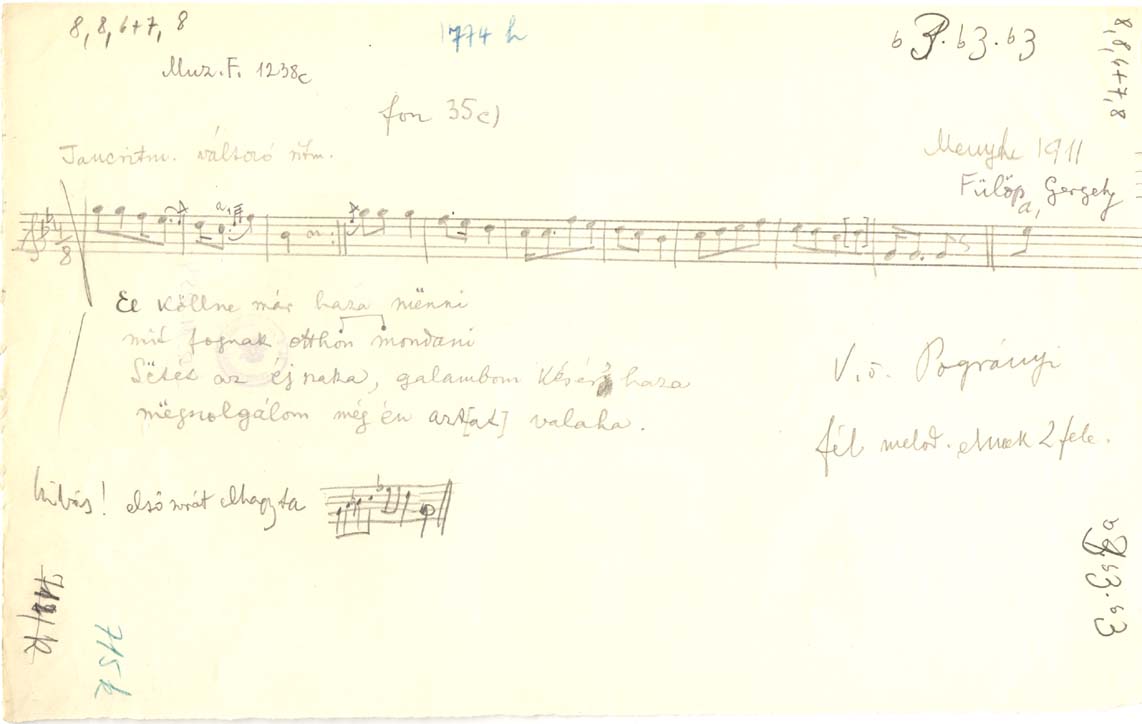 8, 8, 6+7, 8
1774 h
b3. b3. b3
8, 8, 6+7, 8
Muz. F. 1238c
fon 35c)
Tancritm. változó ritm.
Menyhe 1911
Fülöp Gergely
a,
a,
4/8
El köllne már haza mënni
mit fognak otthon mondani
Sëtét az éjszaka, galambom késérj haza
mëgszolgálom még én azt[at] valaha.
V.ö. Pogrányi
fél melod. ennek 2 fele.
hibás! első sorát elhagyta
b3. b3
712/k
715 k